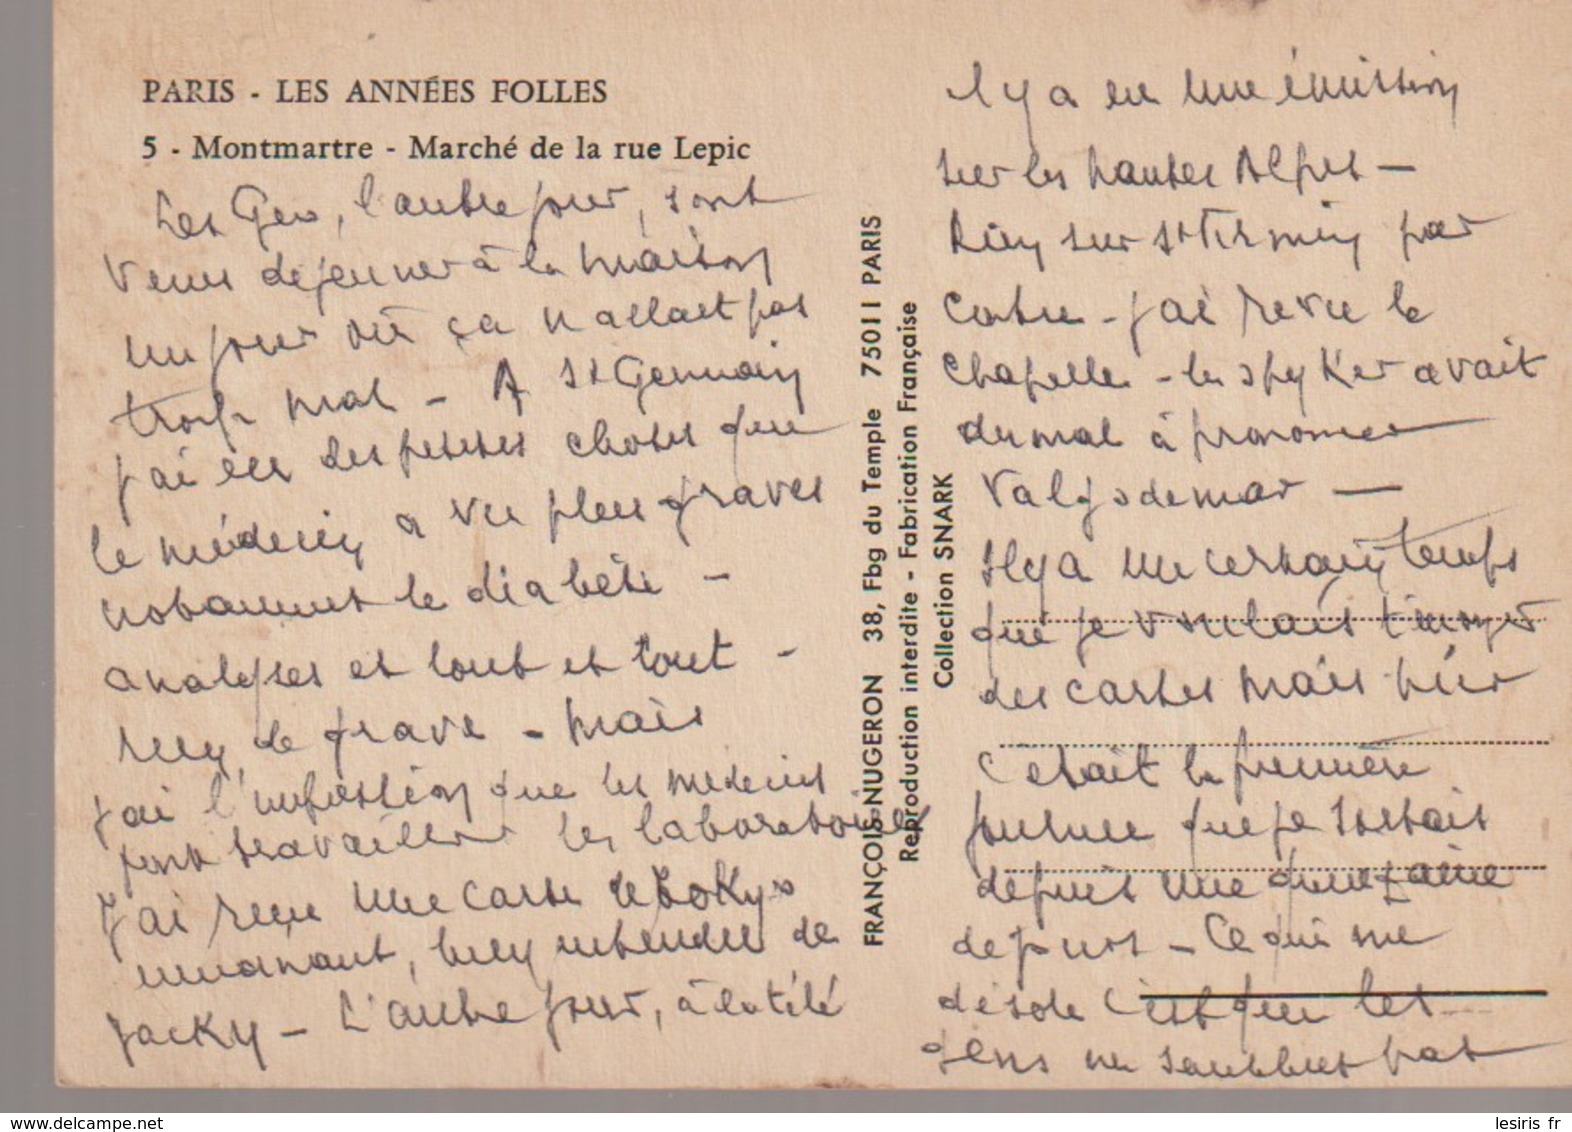 PARIS - LES ANNÉES FOLLES
5 - Montmartre - Marché de la rue Lepic
Les Geo, l'autre jour, sont
venus dejeuner à la maison
un jour où ça n'allait pas
trop mal - A St Germain
j'ai eu des petites choses que
le médecin a vu plus graves
notamment le diabète -
analyses et tout et tout -
rien de grave - mais
j'ai l'impression que les médecins
font travailler les laboratoires
J'ai reçu une carte de Tokyo
émanant, bien entendu de
Jacky - L'autre jour, à la télé
FRANÇOIS NUGERON 38, Fbg du Temple 75011 PARIS
Reproduction interdite - Fabrication Française
Collection SNARK
il y a eu une émission
sur les hautes Alpes -
Rien sur St Firmin par
contre - j'ai revu la
chapelle - le spyker avait
du mal à prononcer
Valgodemar -
Il y a un certain temps
que je voulais t'envoyer
des cartes mais hier
c'était la première
journée que je sortais
depuis une quinzaine
de jours - Ce qui me
désole c'est que les
gens ne sentent pas
lesiris.fr
www.delcampe.net